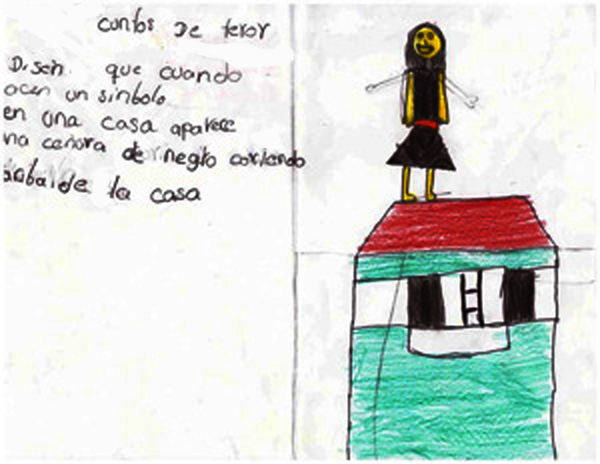 contos de teror
Disen que cuando
ocen un sinbolo
en una casa aparece
na ceñora de negro coriendo
aribaide la casa